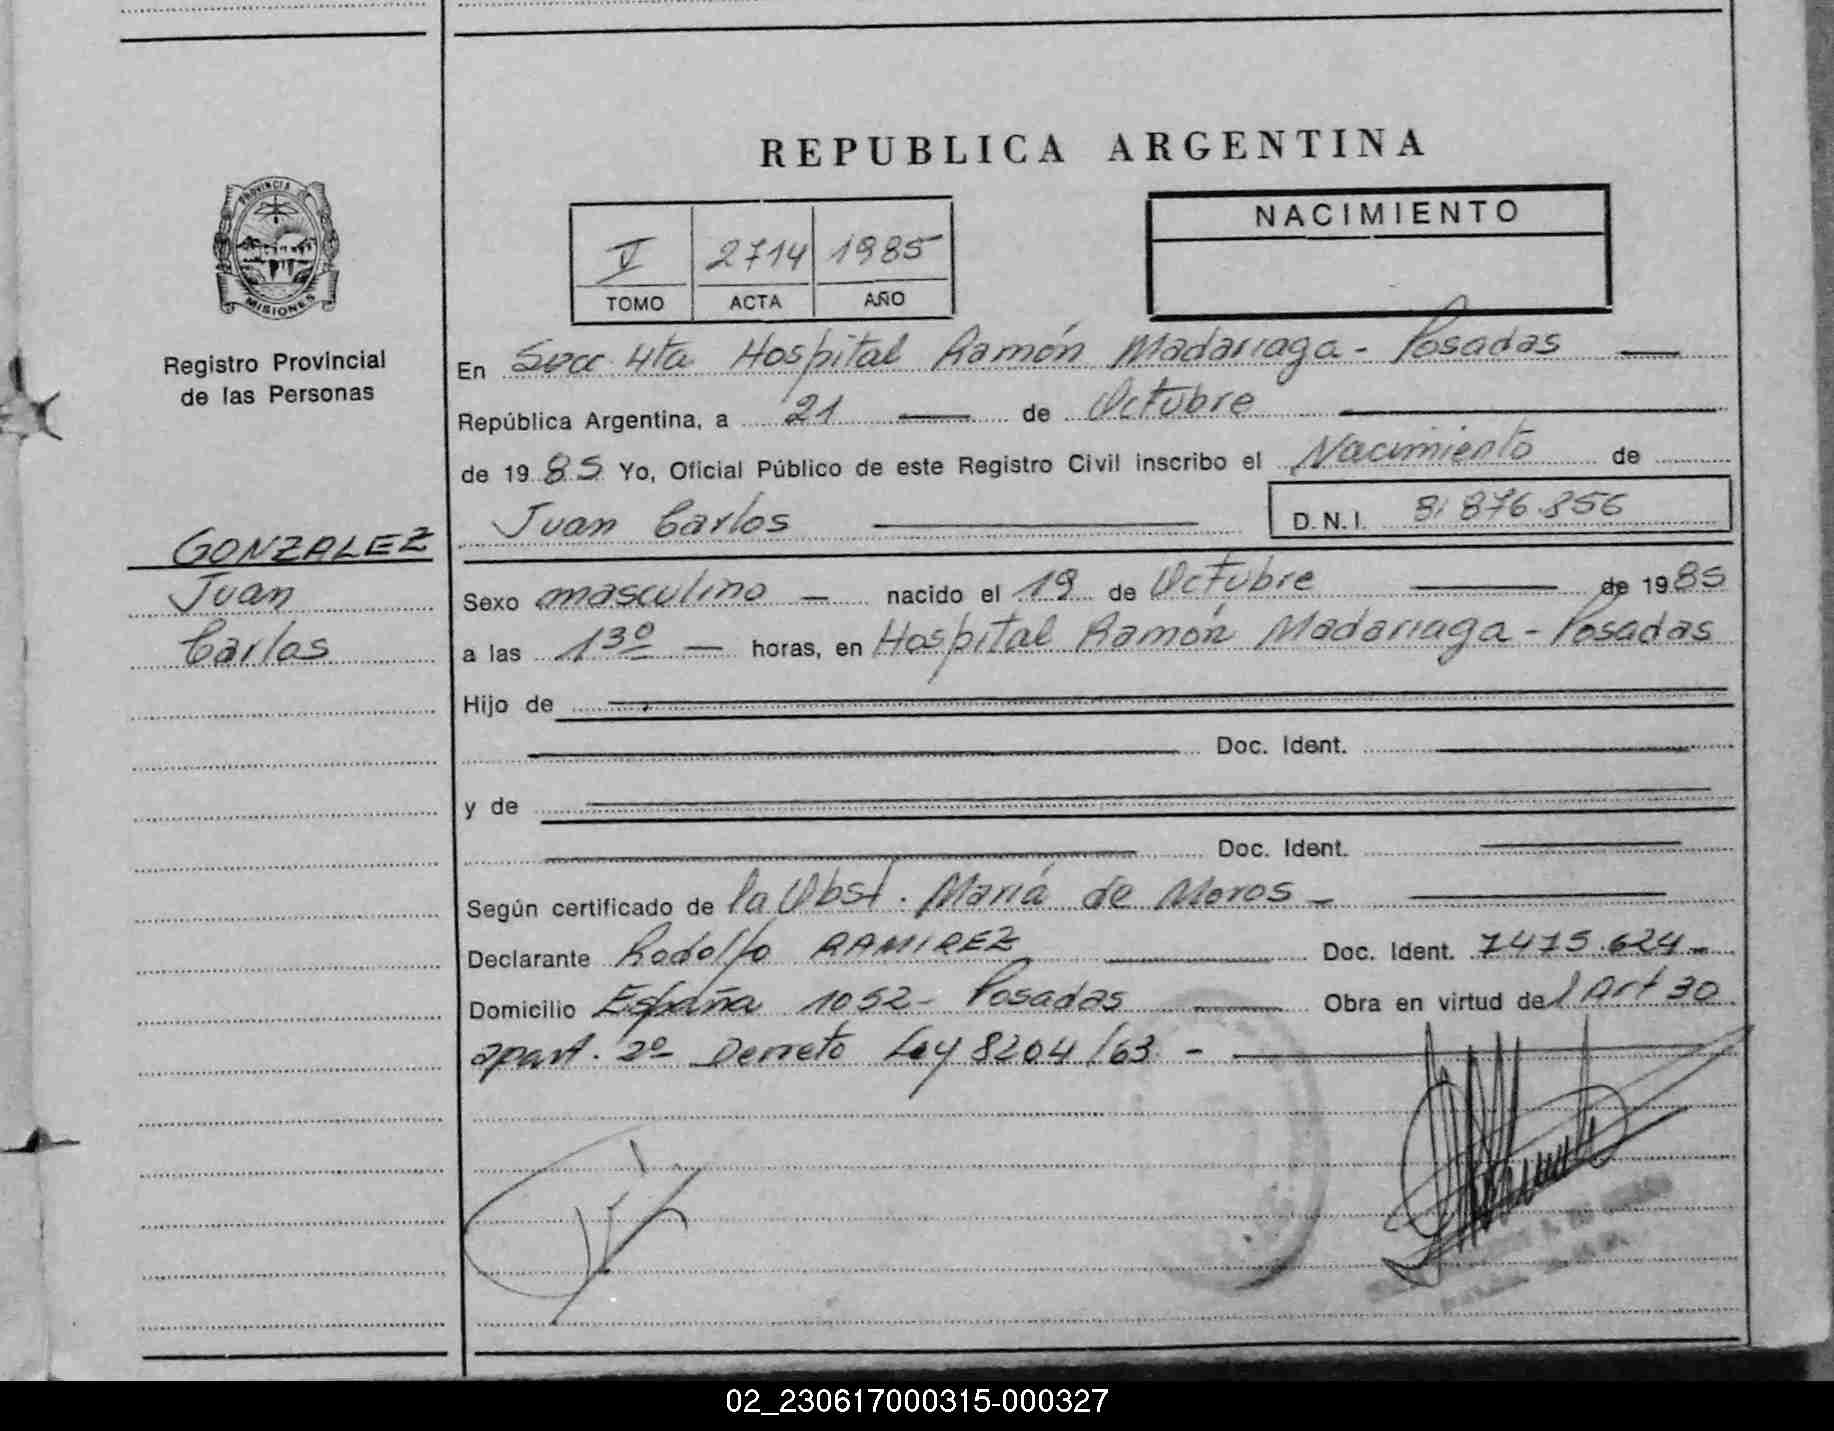 REPUBLICA ARGENTINA
PROVINCIA DE
MISIONES
Registro Provincial
de las Personas
V 2714 1985
TOMO ACTA AÑO
NACIMIENTO
En Secc 4ta Hospital Ramón Madariaga - Posadas
República Argentina, a 21 de Octubre
de 1985 Yo, Oficial Público de este Registro Civil inscribo el Nacimiento de
Juan Carlos D.N.I. 31.876.856
GONZALEZ
Juan
Carlos
Sexo masculino nacido el 19 de Octubre de 1985
a las 13º horas, en Hospital Ramón Madariaga - Posadas
Hijo de
Doc. Ident.
y de
Doc. Ident.
Según certificado de la Obst. María de Moros -
Declarante Rodolfo RAMIREZ Doc. Ident. 7475.624
Domicilio España 1052 - Posadas Obra en virtud del Art 30
apart. 2º Decreto Ley 8204/63 -
02_230617000315-000327